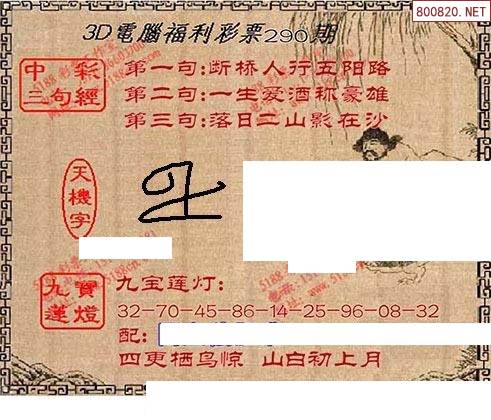 800820.NET
3D電腦福利彩票290期
中彩
三句經
第一句:断桥人行五阳路
第二句:一生爱酒称豪雄
第三句:落日二山影在沙
天機字
九寶
蓮燈
九宝莲灯:
32-70-45-86-14-25-96-08-32
配:
四更栖鸟惊 山白初上月